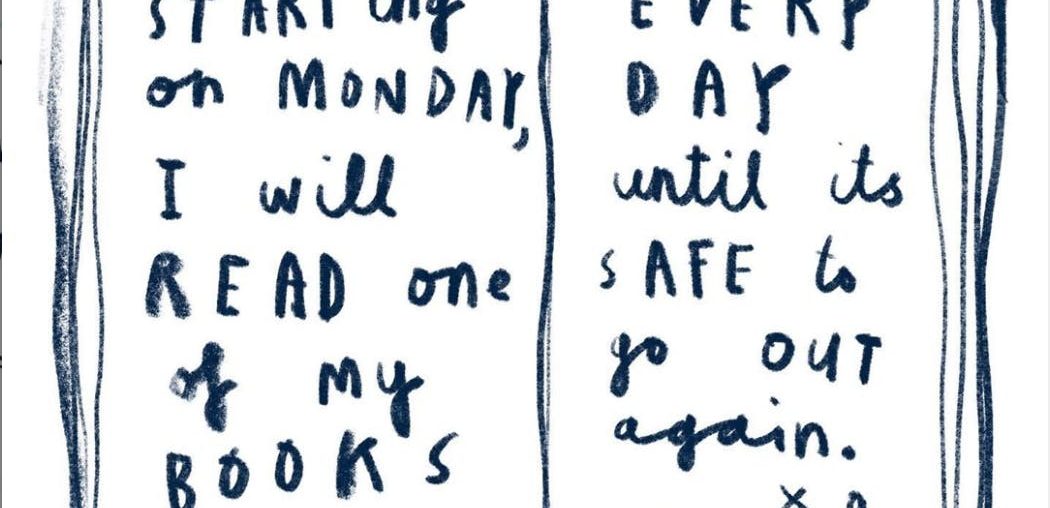 STARTing
on MONDAY,
I will
READ one
of my
BOOKS
EVERY
DAY
until its
SAFE to
go OUT
again.
x